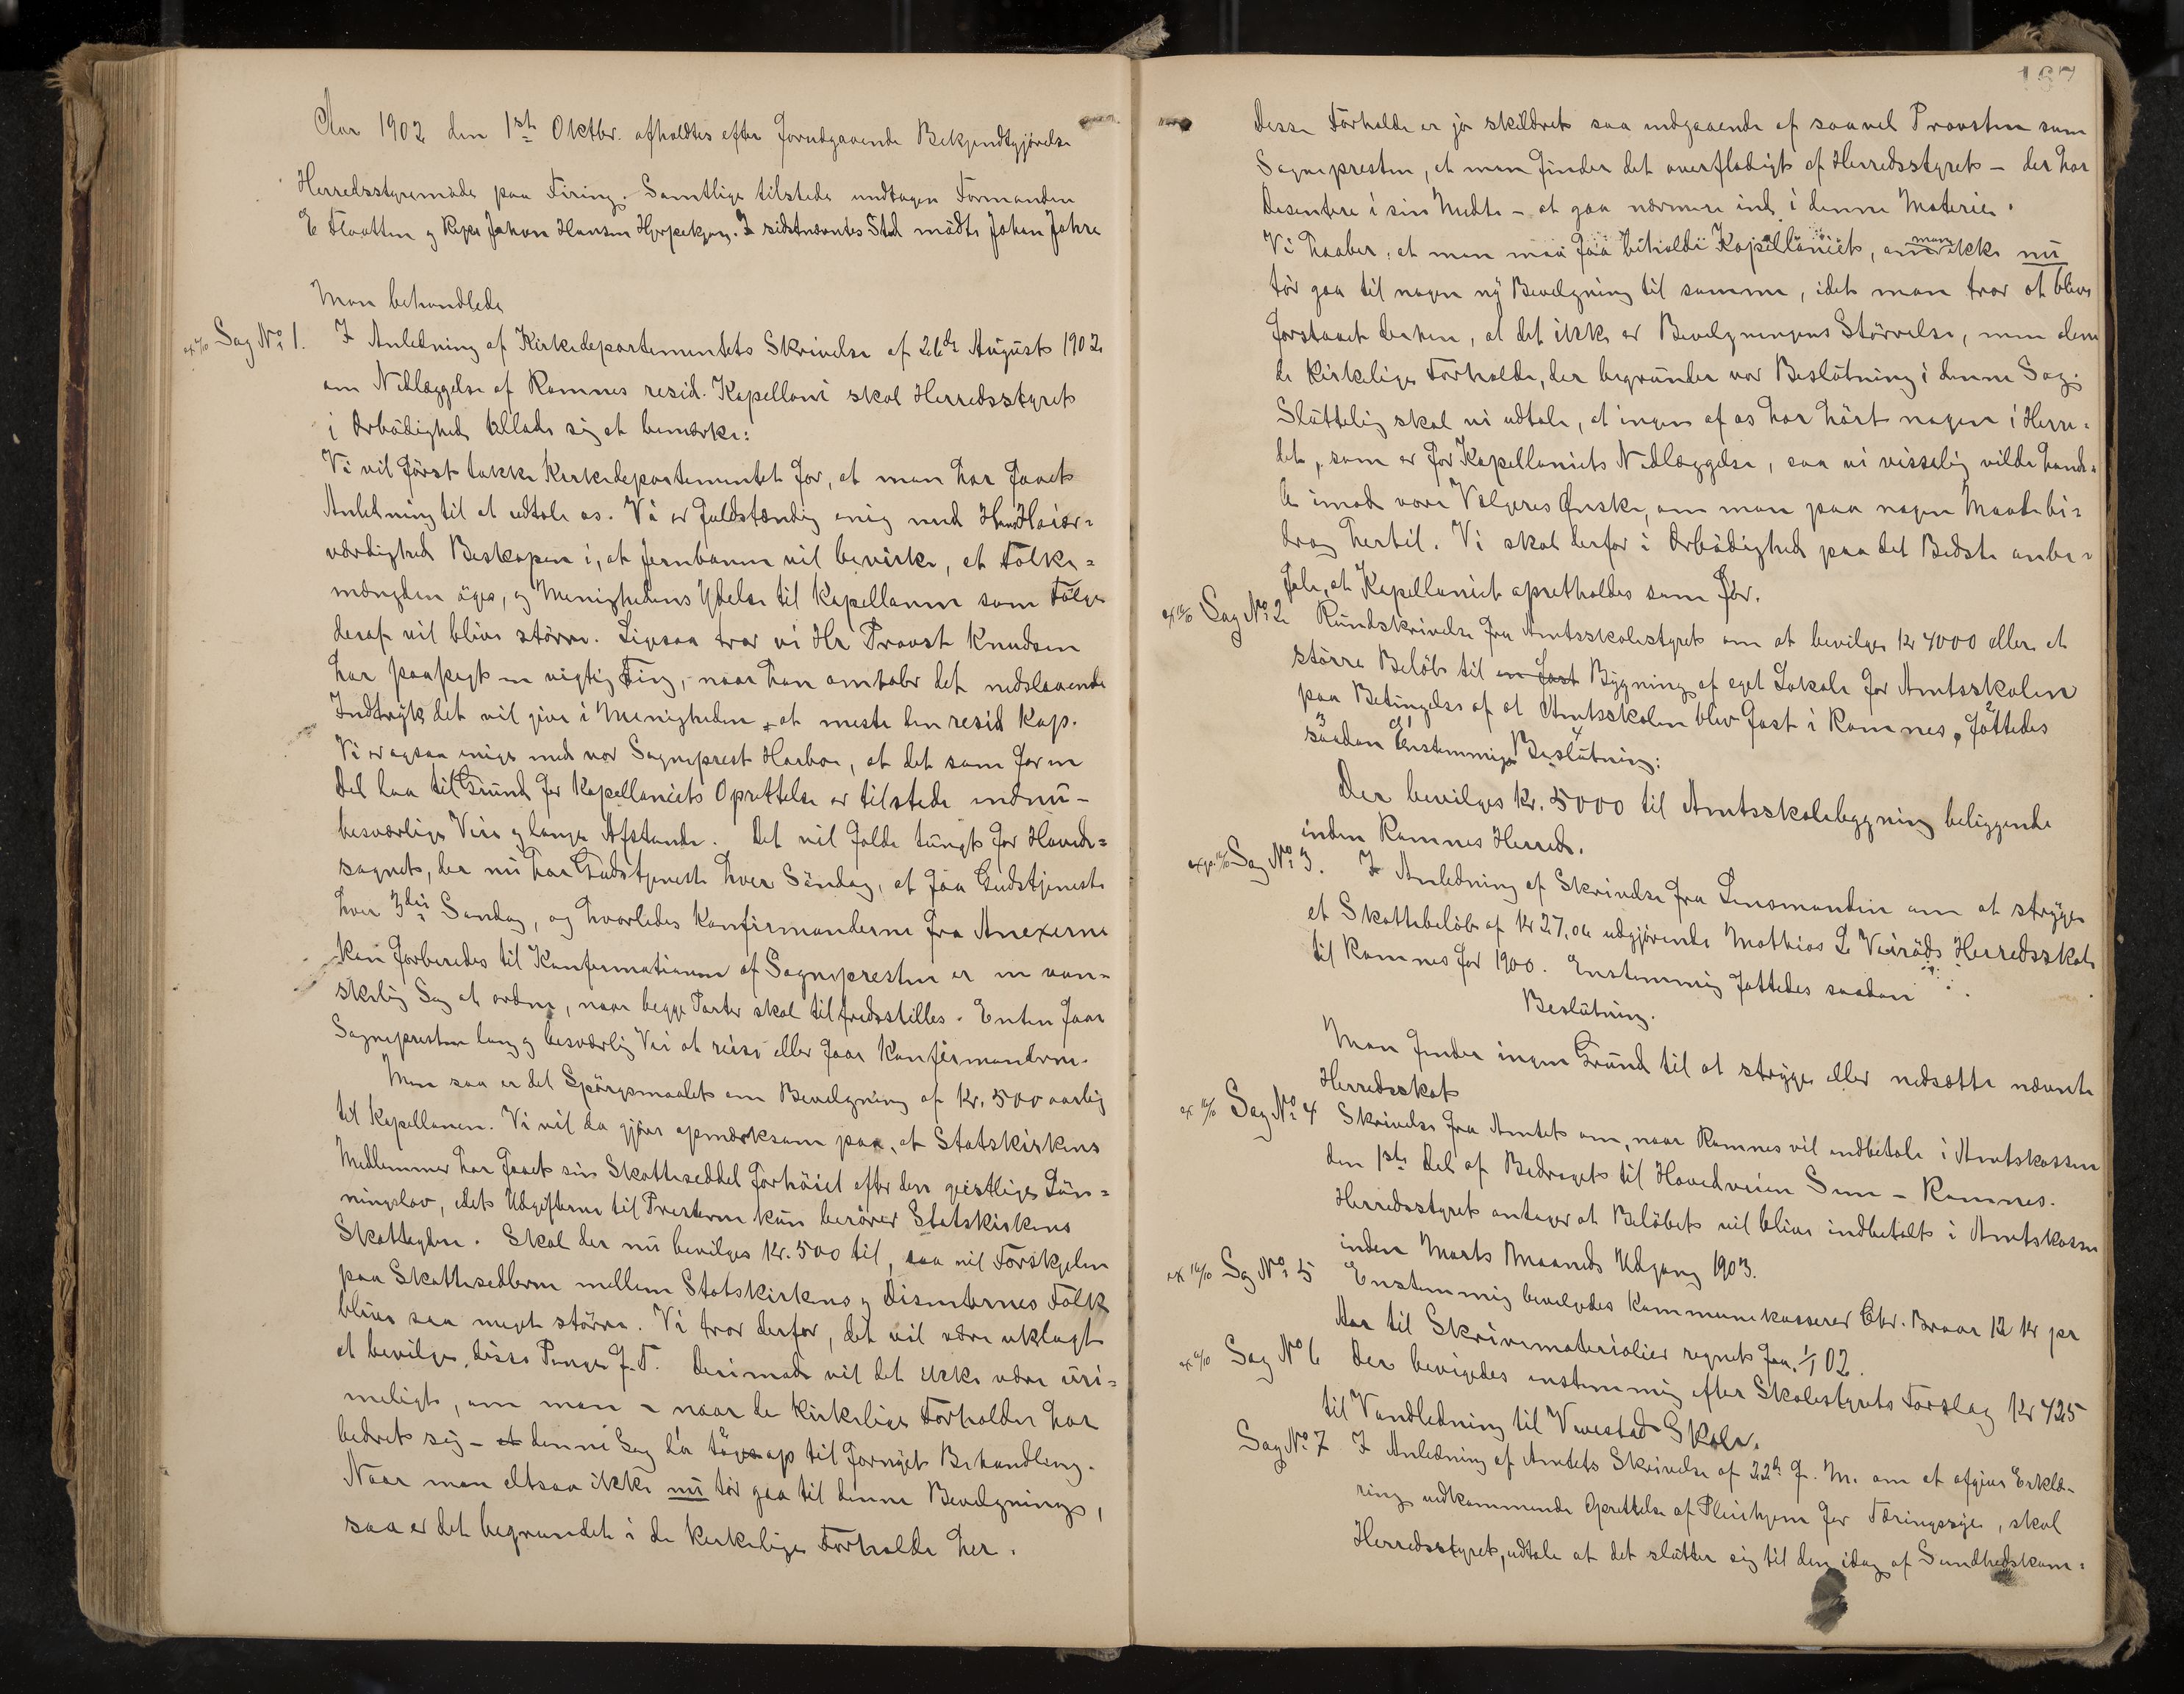 Aar 1902 den 1ste Oktbr. afholdtes efter forudgaaende Bekjendtgjørelse
Herredsstyremøde paa Firing. Samtlige tilstede undtagen Formanden
E Flaatten og Repr Johan Hansen. I sidstnævntes Sted mødte Johan Jahre
Man behandlede
Sag No 1. I Anledning af Kirkedepartementets Skrivelse af 26de August 1902
om Nedlæggelse af Ramnes resid. Kapellani skal Herredsstyret
i Ærbødighed tillade sig at bemærke:
Vi vil først takke Kirkedepartementet for, at man har faaet
Anledning til at udtale os. Vi er fuldstændig enig med Hans Høiær=
værdighed Biskopen i, at Jernbanen vil bevirke, at Folke=
mængden øges, og Menighedens Ydelse til Kapellanen som Følge
deraf vil blive større. Ligesaa tror vi Hr Provst Knudsen
har paapegt en vigtig Ting, naar han omtaler det nedslaaende
Indtryk det vil give i Menigheden at miste den resid Kap.
Vi er ogsaa enige med vor Sogneprest Harboe, at det som for en
Del laa til Grund for Kapellaniets Oprettelse er tilstede endnu -
besværlige Veie og lange Afstande. Det vil falde tungt for Hoved=
sognet, der nu har Gudstjeneste hver Søndag, at faa Gudstjeneste
hver 3die Søndag, og hvorledes Konfirmanderne fra Anexerne
kan forberedes til Konfirmationen af Sognepresten er en van=
skelig Sag at ordne, naar begge Parter skal tilfredsstilles. Enten faar
Sognepresten lang og besværlig Vei at reise eller faar Konfirmanderne.
Men saa er det Spørgsmaalet om Bevilgning af Kr. 500 aarlig
til Kapellanen. Vi vil da gjøre opmærksom paa, at Statskirkens
Medlemmer har faaet sin Skatteseddel forhøiet efter den geistlige Løn=
ningslov, idet Udgifterne til Presterne kun berører Statskirkens
Skatteydere. Skal der nu bevilges Kr. 500 til, saa vil Forskjellen
paa Skattesedlerne mellem Statskirkens og Disenternes Folk
blive saa meget større. Vi tror derfor, det vil være uklogt
at bevilge disse Penge f. T. Derimod vil det ikke være uri=
meligt, om man - naar de kirkelige Forholder har
bedret sig - at denne Sag da toges op til fornyet Behandling.
Naar man altsaa ikke nu tør gaa til denne Bevilgning,
saa er det begrundet i de kirkelige Forholde her.
167
Disse Forholde er jo skildret saa indgaaende af saavel Provsten som
Sognepresten, at man finder det overflødigt af Herredsstyret - der har
Disentere i sin Midte - at gaa nærmere ind i denne Materie.
Vi haaber, at man maa faa beholde Kapellaniet, om man ikke nu
tør gaa til nogen ny Bevilgning til samme, idet man tror at blive
forstaaet derhen, at det ikke er Bevilgningens Størrelse, men alene
de kirkelige Forholde, der begrunder vor Beslutning i denne Sag.
Sluttelig skal vi udtale, at ingen af os har hørt nogen i Herre=
det, som er for Kapellaniets Nedlæggelse, saa vi visselig vilde hand=
le imod vore Vælgeres Ønske, om man paa nogen Maade bi=
drog hertil. Vi skal derfor i Ærbødighed paa det Bedste anbe=
fale, at Kapellaniet opretholdes som før.
Sag No 2 Rundskrivelse fra Amtsskolestyret om at bevilge Kr 4000 eller et
større Beløb til en fast Bygning af eget Lokale for Amtsskolen
paa Betingelse af at Amtsskolen blev fast i Ramnes, fattedes
saadan Enstemmige Beslutning:
Der bevilges Kr. 5000 til Amtsskolebygning beliggende
inden Ramnes Herred.
Sag No 3. I Anledning af Skrivelse fra Lensmanden om at stryge
et Skattebeløb af Kr 27,04 udgjørende Mathias L Veiråds Herredsskat
til Ramnes for 1900. Enstemmig fattedes saadan
Beslutning.
Man finder ingen Grund til at stryge eller nedsætte nævnte
Herredsskat
Sag No 4 Skrivelse fra Amtet om, naar Ramnes vil indbetale i Amtskassen
den 1ste Del af Bidraget til Hovedveien Sem - Ramnes.
Herredsstyret antager at Beløbet vil blive indbetalt i Amtskassen
inden Marts Maaneds Udgang 1903.
Sag No 5 Enstemmig bevilgedes Kommunekasserer Chr. Braar 12 Kr pr
Aar til Skrivematerialier regnet fra 1/1 02.
Sag No 6 Der bevigedes enstemmig efter Skolestyrets Forslag Kr 425
til Vandledning til Vivestad Skole.
Sag No 7 I Anledning af Amtets Skrivelse af 22de f. M. om at afgive Erklæ-
ring vedkommende Oprettelse af Pleiehjem for Tæringssyge, skal
Herredsstyret, udtale at det slutter sig til den idag af Sundhedskom=